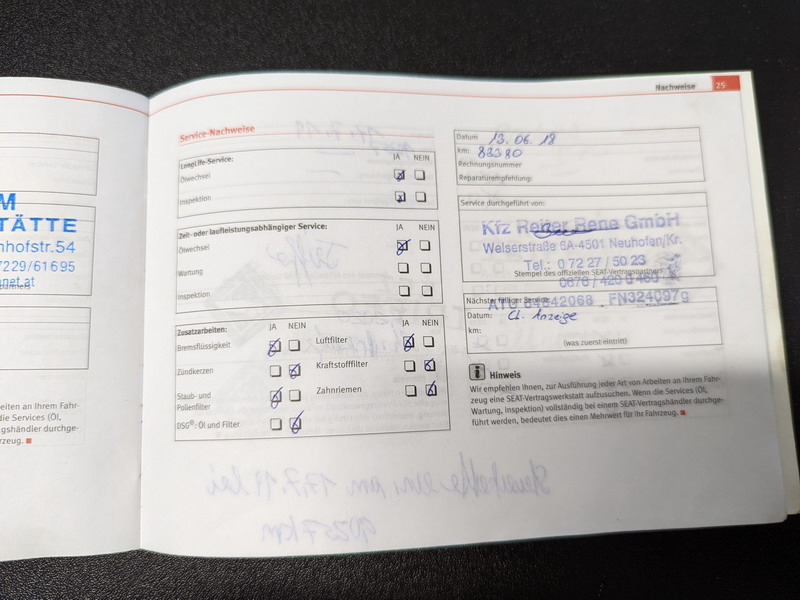 Nachweise 25
M
TÄTTE
nhofstr.54
7229/61695
net.at
eiten an Ihrem Fahr-
die Services (Öl,
gshändler durchge-
rzeug.
Service-Nachweise
LongLife-Service: JA NEIN
Ölwechsel
Inspektion
Zeit- oder laufleistungsabhängiger Service: JA NEIN
Ölwechsel
Wartung
Inspektion
Zusatzarbeiten: JA NEIN JA NEIN
Bremsflüssigkeit Luftfilter
Zündkerzen Kraftstofffilter
Staub- und
Pollenfilter Zahnriemen
DSG®: Öl und Filter
Datum 13.06.18
km: 83380
Rechnungsnummer
Reparaturempfehlung:
Service durchgeführt von:
Kfz Reiter Rene GmbH
Welserstraße 6A-4501 Neuhofen/Kr.
Tel.: 0 72 27 / 50 23
Stempel des offiziellen SEAT-Vertragspartners
0676 / 420 0 460
Nächster fälliger Service:
ATU 64842068 FN324097g
Datum: Lt. Anzeige
km:
(was zuerst eintritt)
Hinweis
Wir empfehlen Ihnen, zur Ausführung jeder Art von Arbeiten an Ihrem Fahr-
zeug eine SEAT-Vertragswerkstatt aufzusuchen. Wenn die Services (Öl,
Wartung, Inspektion) vollständig bei einem SEAT-Vertragshändler durchge-
führt werden, bedeutet dies einen Mehrwert für Ihr Fahrzeug.